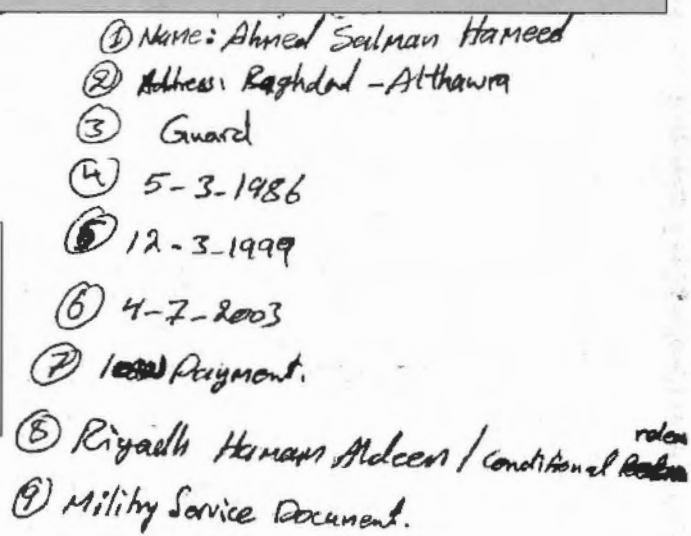 ① Name: Ahmed Salman Hameed
② Address: Baghdad - Althawra
③ Guard
④ 5-3-1986
⑤ 12-3-1999
⑥ 4-7-2003
⑦ Payment.
⑧ Riyadh Hamam Aldeen / Conditional
⑨ Militry Service Document.